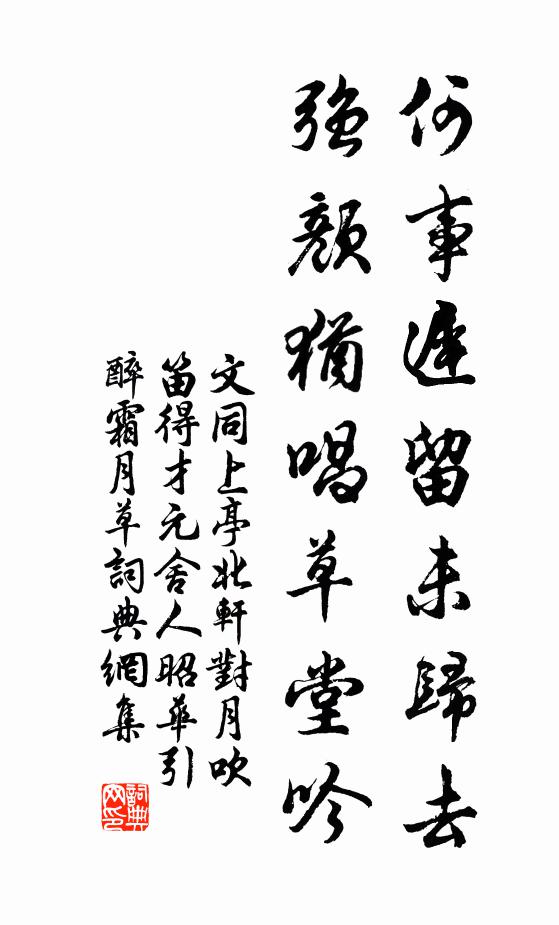 何事遲留未歸去
強顏猶唱草堂吟
文同上亭北軒對月吹
笛得才元舍人昭華引
醉霜月草詞典網集
詞典网印